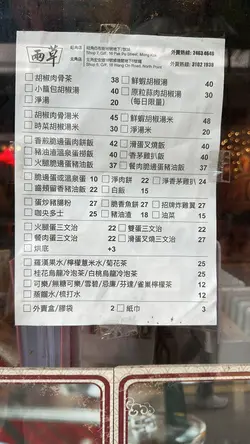 兩草
外賣熱線: 3463 4640
外賣熱線: 3102 1833
胡椒肉骨茶 38
鮮蝦胡椒湯 40
小腸包胡椒湯 40
原粒蒜肉胡椒湯 40
淨湯 20
(每日限量)
胡椒肉骨湯米 45
鮮蝦胡椒湯米 48
時菜胡椒湯米 30
淨湯米 20
香煎脆邊蛋肉餅飯 42
滑蛋叉燒飯 40
豬油渣溫泉蛋撈飯 40
香茅雞扒飯 40
火腿脆邊蛋豬油飯 36
餐肉脆邊蛋豬油飯 36
脆邊蛋或溫泉蛋 10
淨肉餅 22
淨香茅雞扒 24
豬油飯 22
白飯 15
蛋炒豬腸粉 27
脆香魚餅 27
招牌炸雞翼 27
咖央多士 25
豬油渣 18
油菜 15
火腿蛋三文治 22
雙蛋三文治 22
餐肉蛋三文治 22
滑蛋叉燒三文治 27
烘底 +3
羅漢果水/檸檬薏米水/菊花茶 25
桂花烏龍冷泡茶/白桃烏龍冷泡茶 25
可樂/無糖可樂/雪碧/忌廉/芬達/雀巢檸檬茶 12
蒸餾水/梳打水 12
外賣盒/膠袋 2
紙巾 3